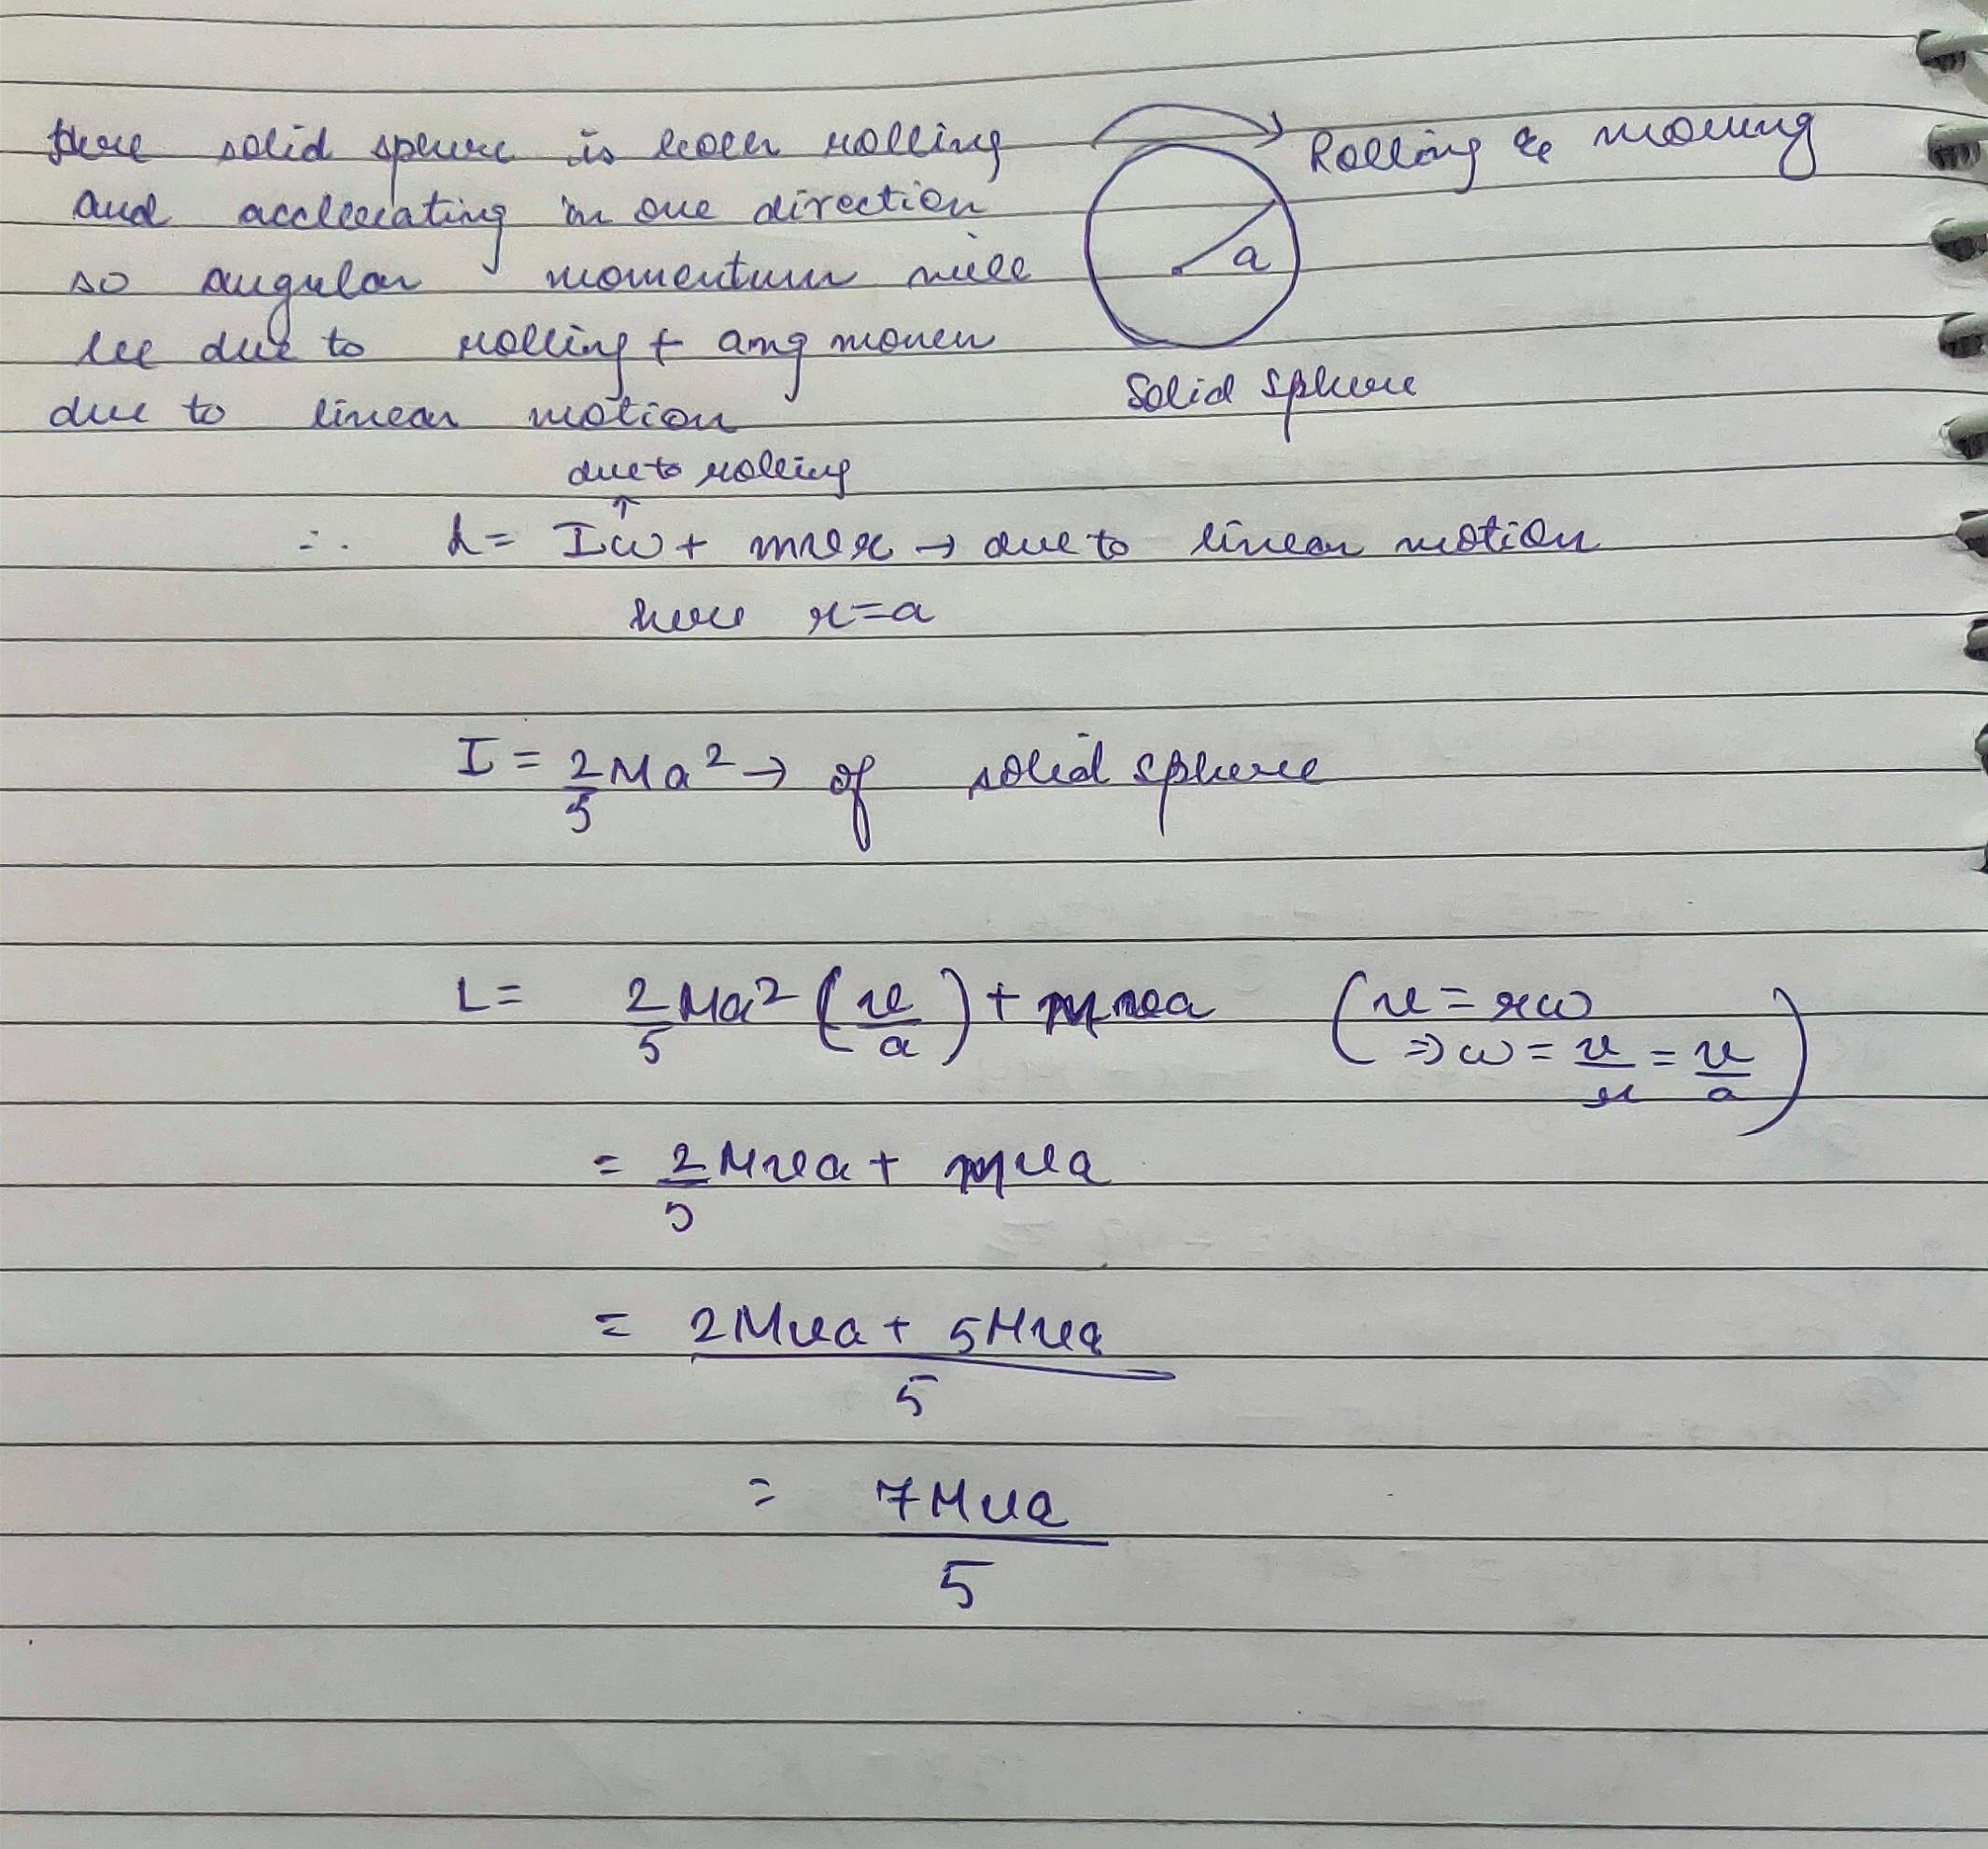 Here solid sphere is both rolling
and accelerating in one direction
so angular momentum will
be due to rolling + ang momen
due to linear motion
Rolling & moving
a
Solid Sphere
due to rolling
↑
∴ L = Iω + mvr → due to linear motion
here r = a
I = 2/5 Ma² → of solid sphere
L = 2/5 Ma² (v/a) + Mva (v = rω
⇒ ω = v/r = v/a)
= 2/5 Mva + Mva
= 2Mva + 5Mva / 5
= 7Mva / 5